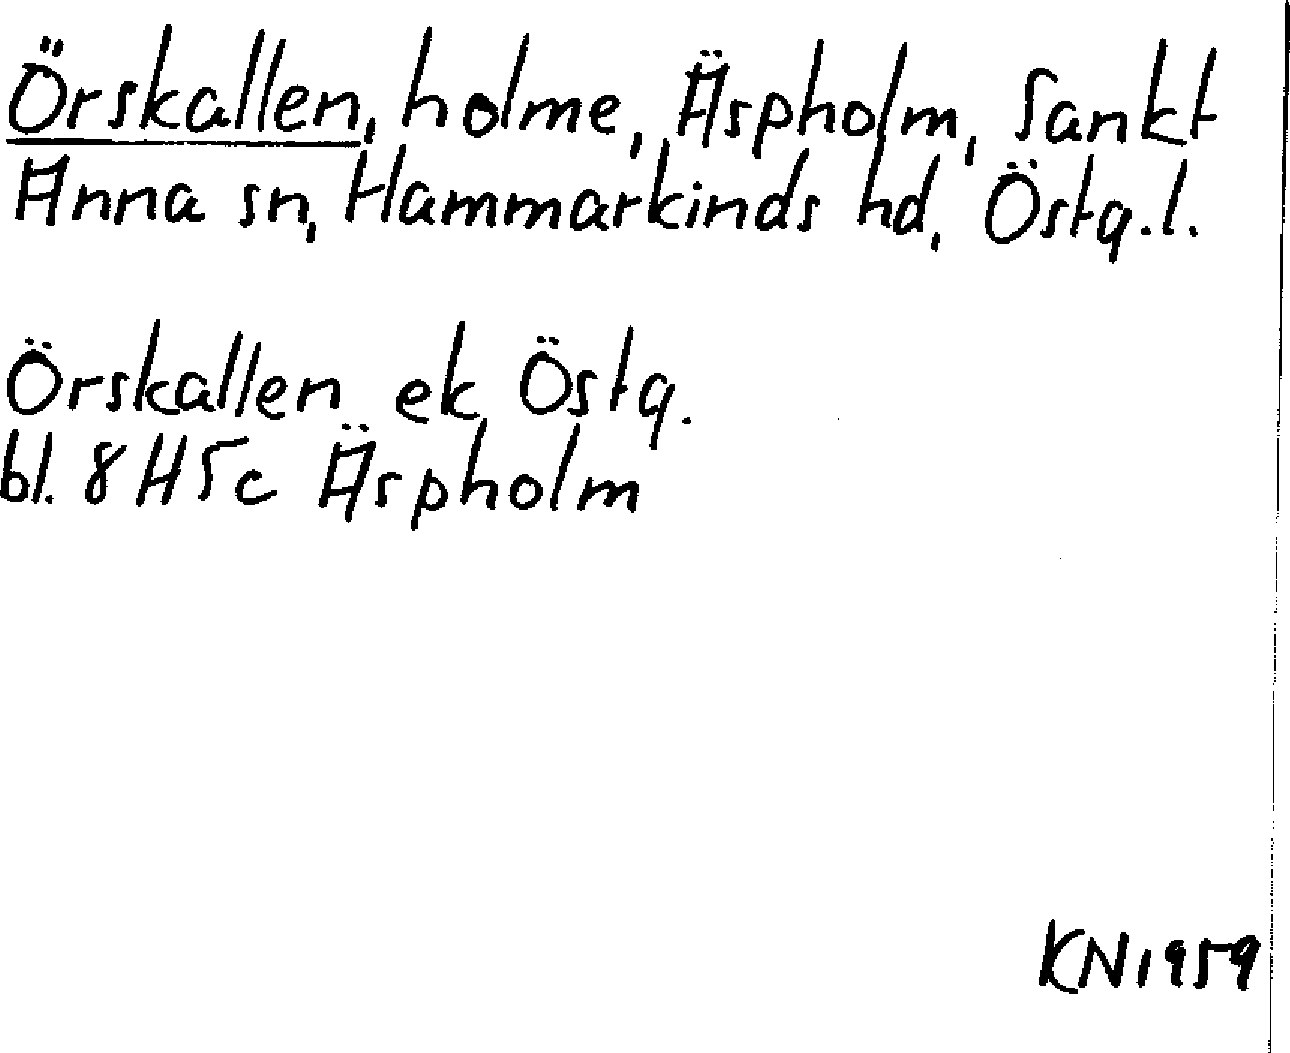 Örskallen, holme, Äspholm, Sankt
Anna sn, Hammarkinds hd, Östg.l.
Örskallen ek Östg.
bl. 8H5c Äspholm
KN1959